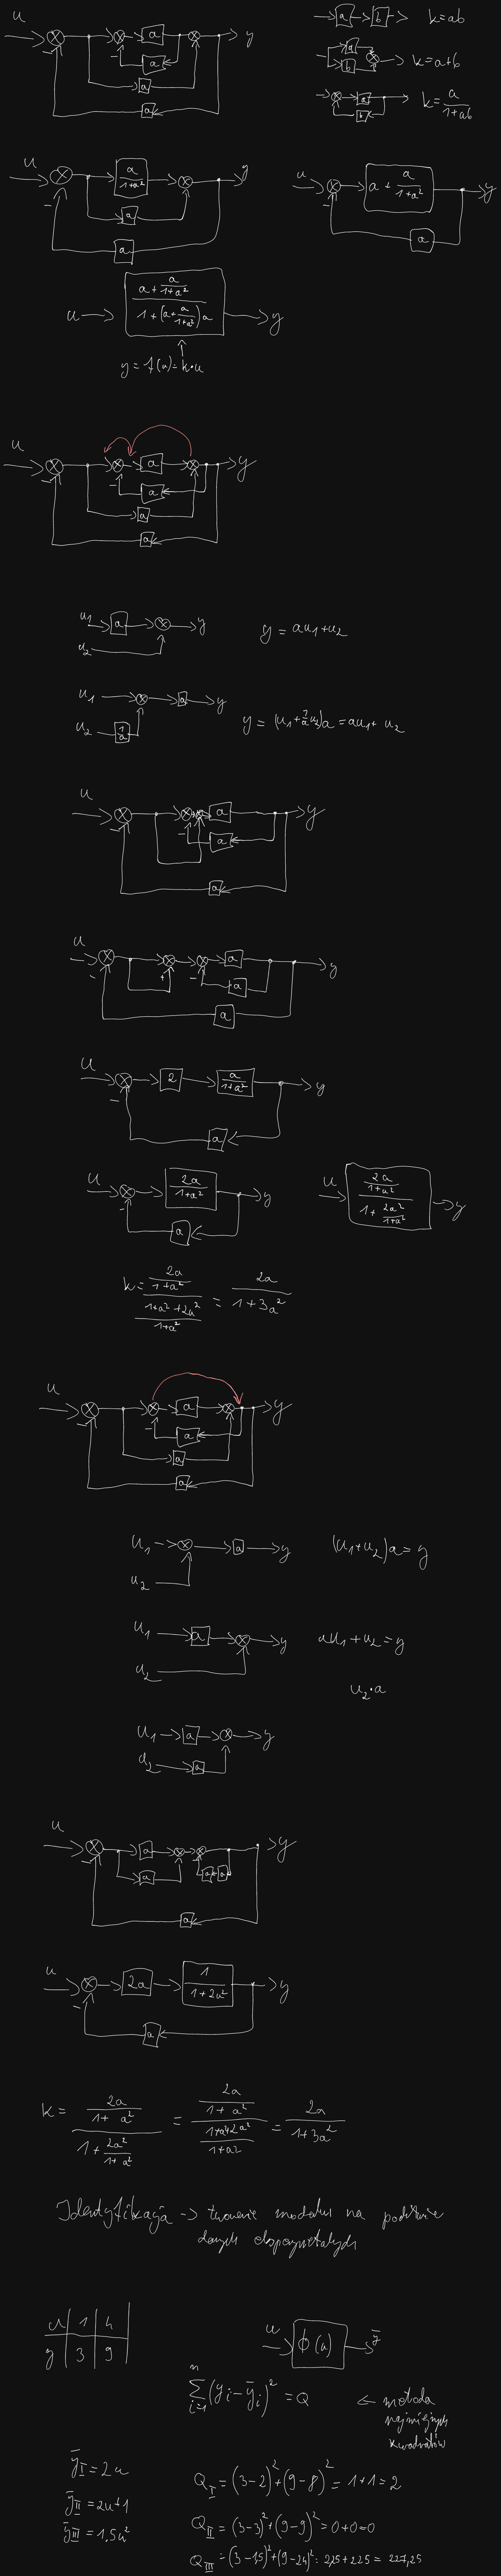 u a y a a a
a b k=ab
a b k=a+b
a b k=a/(1+ab)
u a/(1+a²) y
a
a
u a + a/(1+a²) y
a
u → (a + a/(1+a²))/(1+(a + a/(1+a²))a) → y
y = f(u) = k·u
u a y
a
a
a
u1 a y
u2
y = au1+u2
u1 a y
u2 1/a
y = (u1+1/a u2)a = au1+ u2
u a y
a
a
u a y
a
a
u 2 a/(1+a²) y
a
u 2a/(1+a²) y
a
u (2a/(1+a²))/(1+2a²/(1+a²)) y
k = (2a/(1+a²))/((1+a²+2a²)/(1+a²)) = 2a/(1+3a²)
u a y
a
a
a
u1 a y
u2
(u1+u2)a=y
u1 a y
u2
au1+u2=y
u2·a
u1 a y
u2 a
u a y
a a a
a
u 2a 1/(1+2a²) y
a
k = (2a/(1+a²))/(1+2a²/(1+a²)) = (2a/(1+a²))/((1+a²+2a²)/(1+a²)) = 2a/(1+3a²)
Identyfikacja → tworzenie modelu na podstawie
danych
u | 1 | 4
y | 3 | 9
u ϕ(u) ȳ
n
∑ (yi-ȳi)² = Q
i=1
← metoda
najmniejszych
kwadratów
ȳI = 2u
QI = (3-2)²+(9-8)² = 1+1=2
ȳII = 2u+1
QII = (3-3)²+(9-9)²=0+0=0
ȳIII = 1,5u²
QIII = (3-1,5)²+(9-24)² = 2,25+225 = 227,25